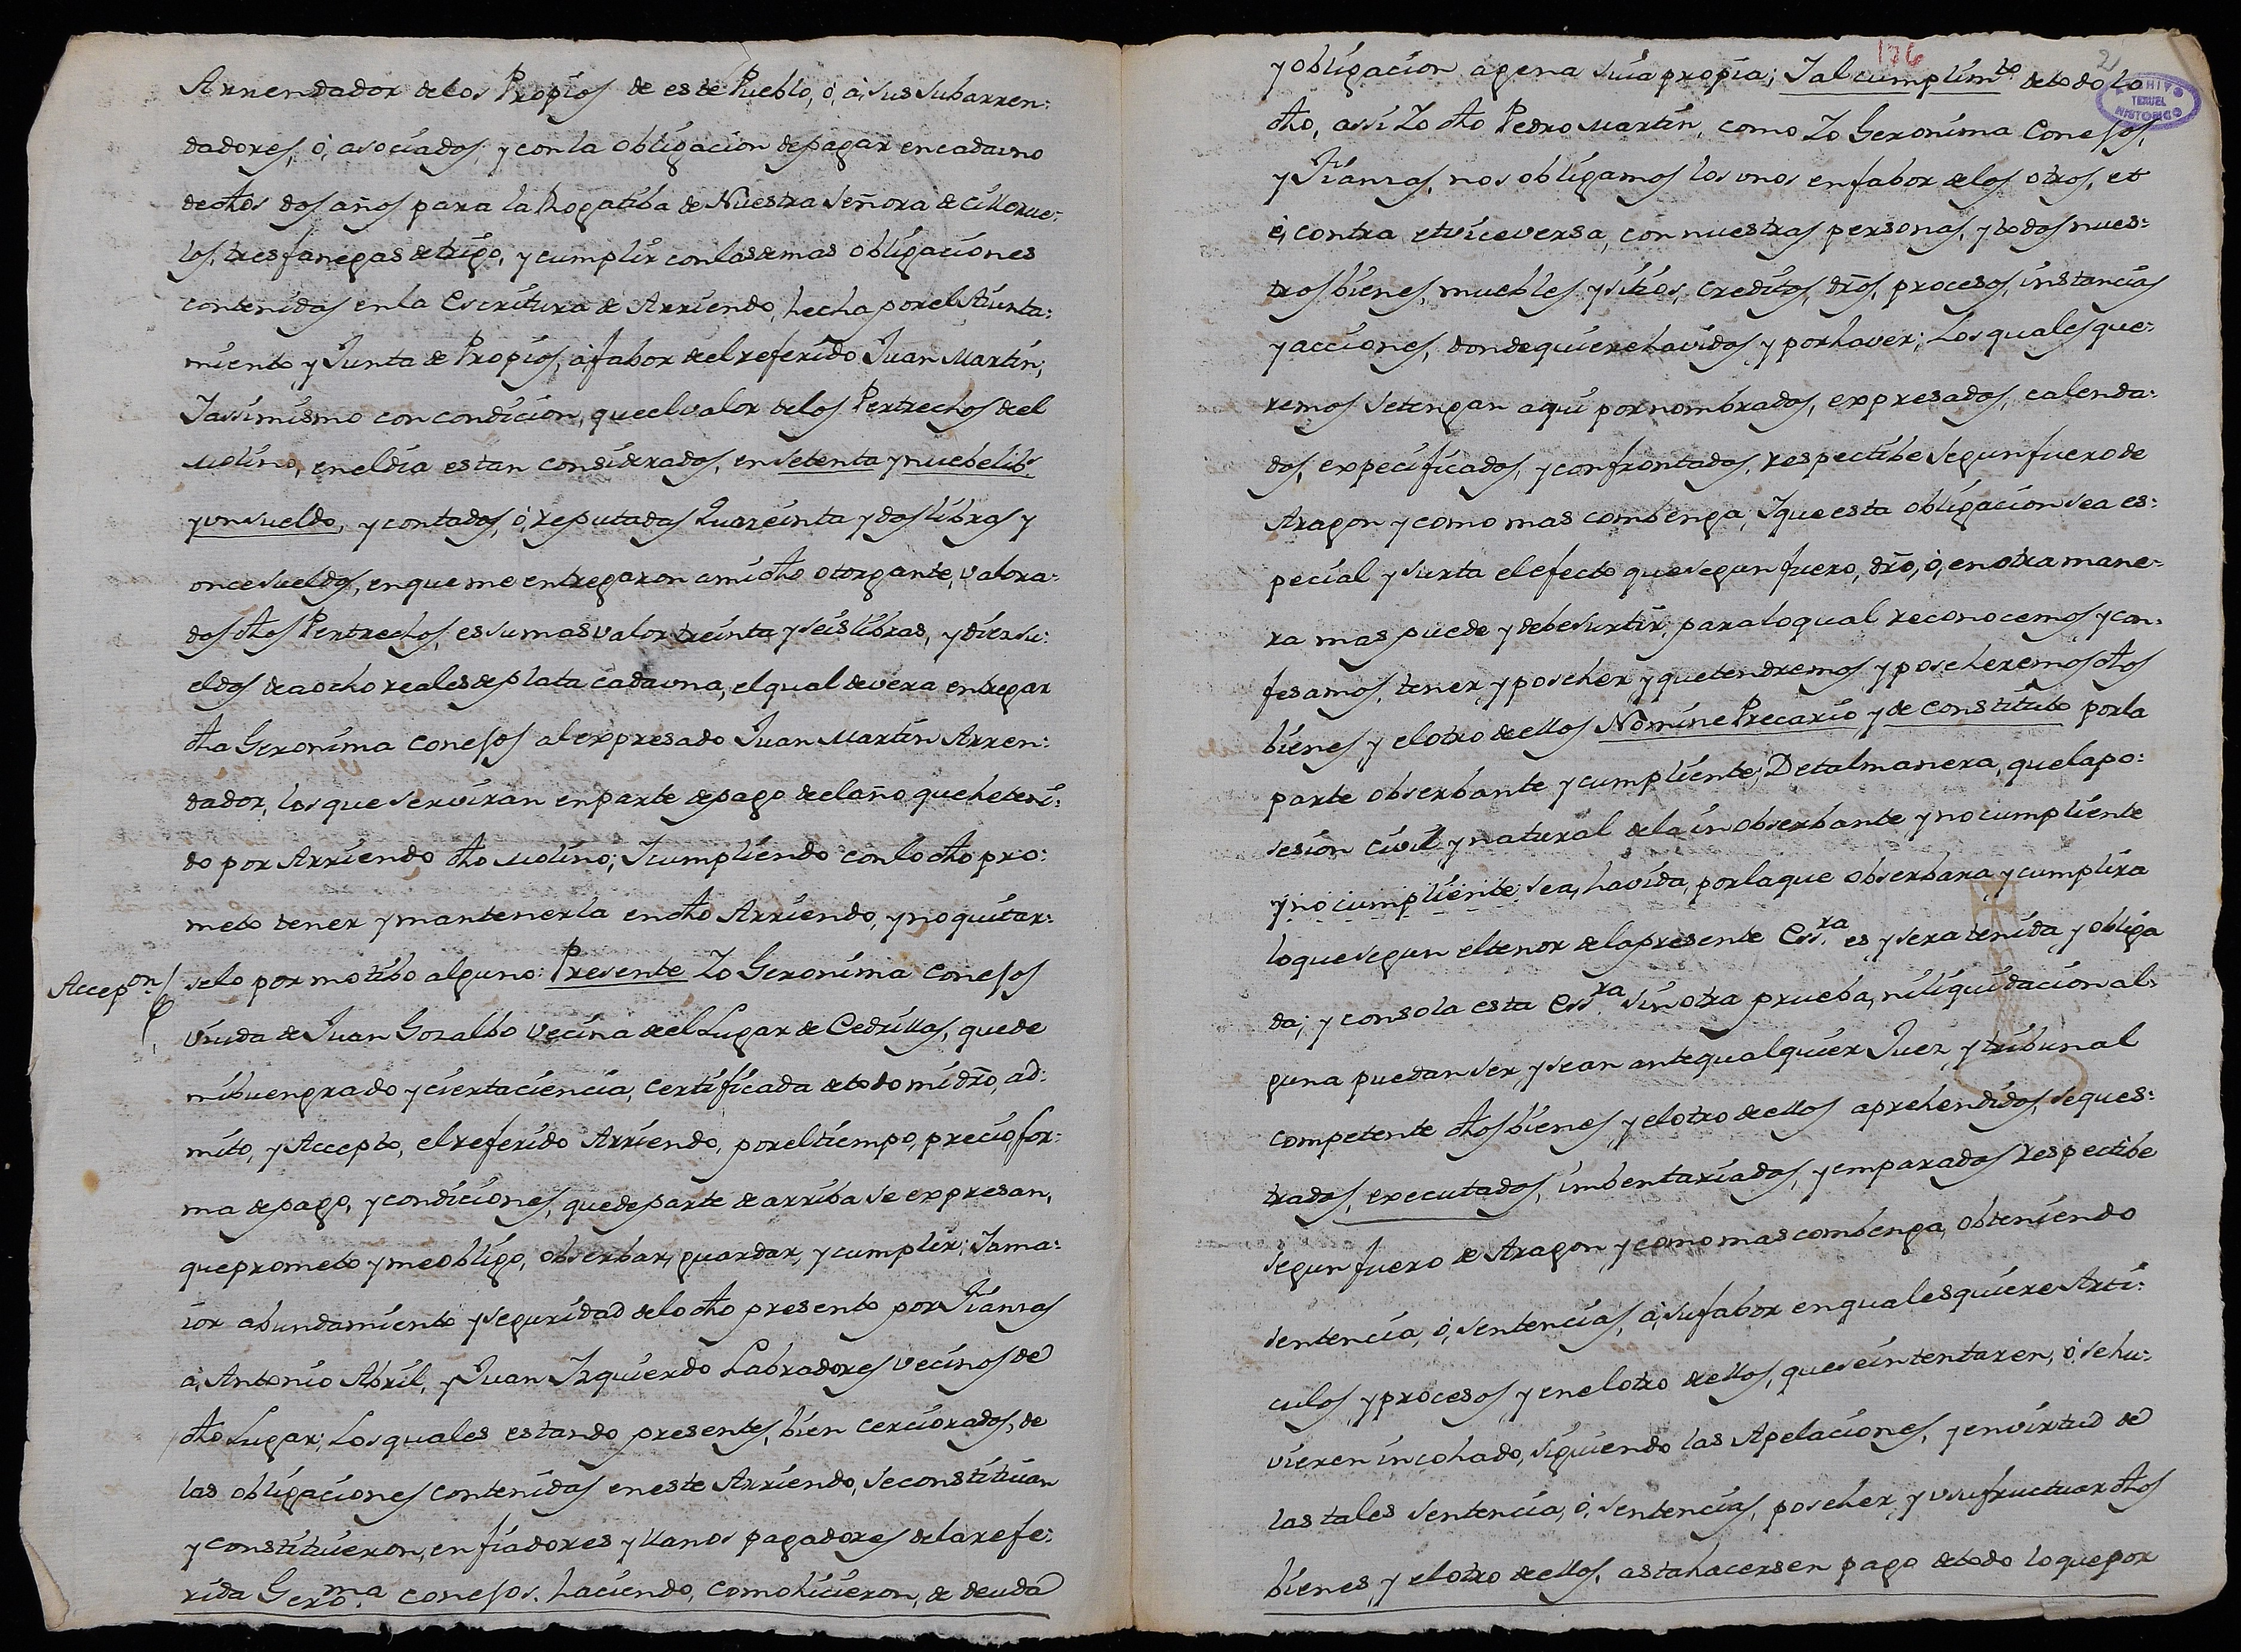 Arrendador delos Propios de este Pueblo, ó, à, sus Subarren:
dadores, ó, asociados, y con la obligacion de pagar en cada uno
de dhos dos años para la Rogatiba de Nuestra Señora de Cillerue:
los, tres fanegas de trigo, y cumplir con las demas obligaciones
contenidas en la Escritura de Arriendo, hecha por el Aiunta:
miento, y Junta de Propios, á, fabor de el referido Juan Martin;
Y assimismo con condicion, que el valor delos Pertrechos de el
Molino, en el dia estan considerados, en setenta y nuebe libs
y un sueldo, y contados, ó, reputados Quareinta y dos libras y
once sueldos, en que me entregaron a mi dho otorgante, valora:
dos dhos Pertrechos, es su mas valor treinta y seis libras, y diez su:
eldos de a ocho reales de plata cada una, el qual devera entregar
dha Geronima Conesos al expresado Juan Martin Arren:
dador, los que serviran en parte de pago de el año que he teni:
do por Arriendo dho Molino; Y cumpliendo con lo dho pro:
meto tener y mantenerla en dho Arriendo, y no quitar:
Accepon. selo por motibo alguno: Presente Yo Geronima Conesos
viuda de Juan Gozalbo vecina de el Lugar de Cedrillas, que de
mi buen grado y cierta ciencia, certificada de todo mi dro, ad:
mito, y Accepto, el referido Arriendo, por el tiempo, precio, for:
ma de pago, y condiciones, que de parte de arriba se expresan,
que prometo y me obligo, obserbar, guardar, y cumplir; Y a ma:
ior abundamiento y seguridad de lo dho presento por Fianzas
a, Antonio Abril, y Juan Izquierdo Labradores vecinos de
dho Lugar; Los quales estando presentes, bien cerciorados, de
las obligaciones contenidas en este Arriendo, se constituian
y constituieron, en fiadores y llanos pagadores de la refe:
rida Geroma. Conesos. haciendo, como hicieron, de deuda
176
2
ARCHIVO
TERUEL
HISTORICO
y obligacion agena suia propia; Y al cumplimto. de todo lo
dho, assi Yo dho Pedro Martin, como Yo Geronima Conesos,
y Fianzas, nos obligamos los unos en fabor de los otros, et
é, contra et viceversa, con nuestras personas, y todos nues:
tros bienes, muebles y sitios, creditos, dros, procesos, instancias
y acciones, donde quiere havidos y por haver; Los quales que:
remos se tengan aqui por nombrados, expresados, calenda:
dos, expecificados, y confrontados, respectibe segun fuero de
Aragon y como mas combenga; Y que esta obligacion sea es:
pecial y surta el efecto que segun fuero, dro, ó, en otra mane:
ra mas puede y debe surtir; para lo qual reconocemos y con:
fesamos, tener, y poseher, y que tendremos y poseheremos dhos
bienes, y el otro de ellos Nomine Precario y de constituto por la
parte obserbante y cumpliente; De tal manera, que la po:
sesion civil y natural de la inobserbante y no cumpliente
y no cumpliente sea, havida, por la que obserbara y cumplira
lo que segun el tenor de la presente Essra. es, y sera tenida, y obliga
da; y con sola esta Essra. sin otra prueba, ni liquidacion al:
guna puedan ser, y sean ante qualquier Juez, y tribunal
competente dhos bienes, y el otro de ellos aprehendidos, seques:
trados, executados, imbentariados, y emparados respectibe
segun fuero de Aragon y como mas combenga, obteniendo
sentencia, ó, sentencias, á, su fabor en qualesquiere Arti:
culos, y procesos, y en el otro de ellos, que se intentaren, ó, se hu:
vieren incohado, siguiendo las Apelaciones, y en virtud de
las tales sentencia, ó, sentencias, poseher, y usufructuar dhos
bienes, y el otro de ellos, asta hacersen pago de todo lo que por